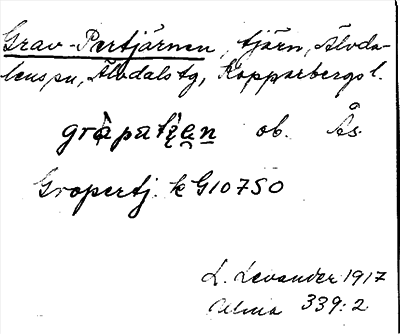 Grav-Pertjärnen, tjärn, Älvda-
lens sn, Älvdals tg, Kopparbergs l.
ob. Ås.
Gropertj. k G10750
L. Levander 1917
Ulma 339:2